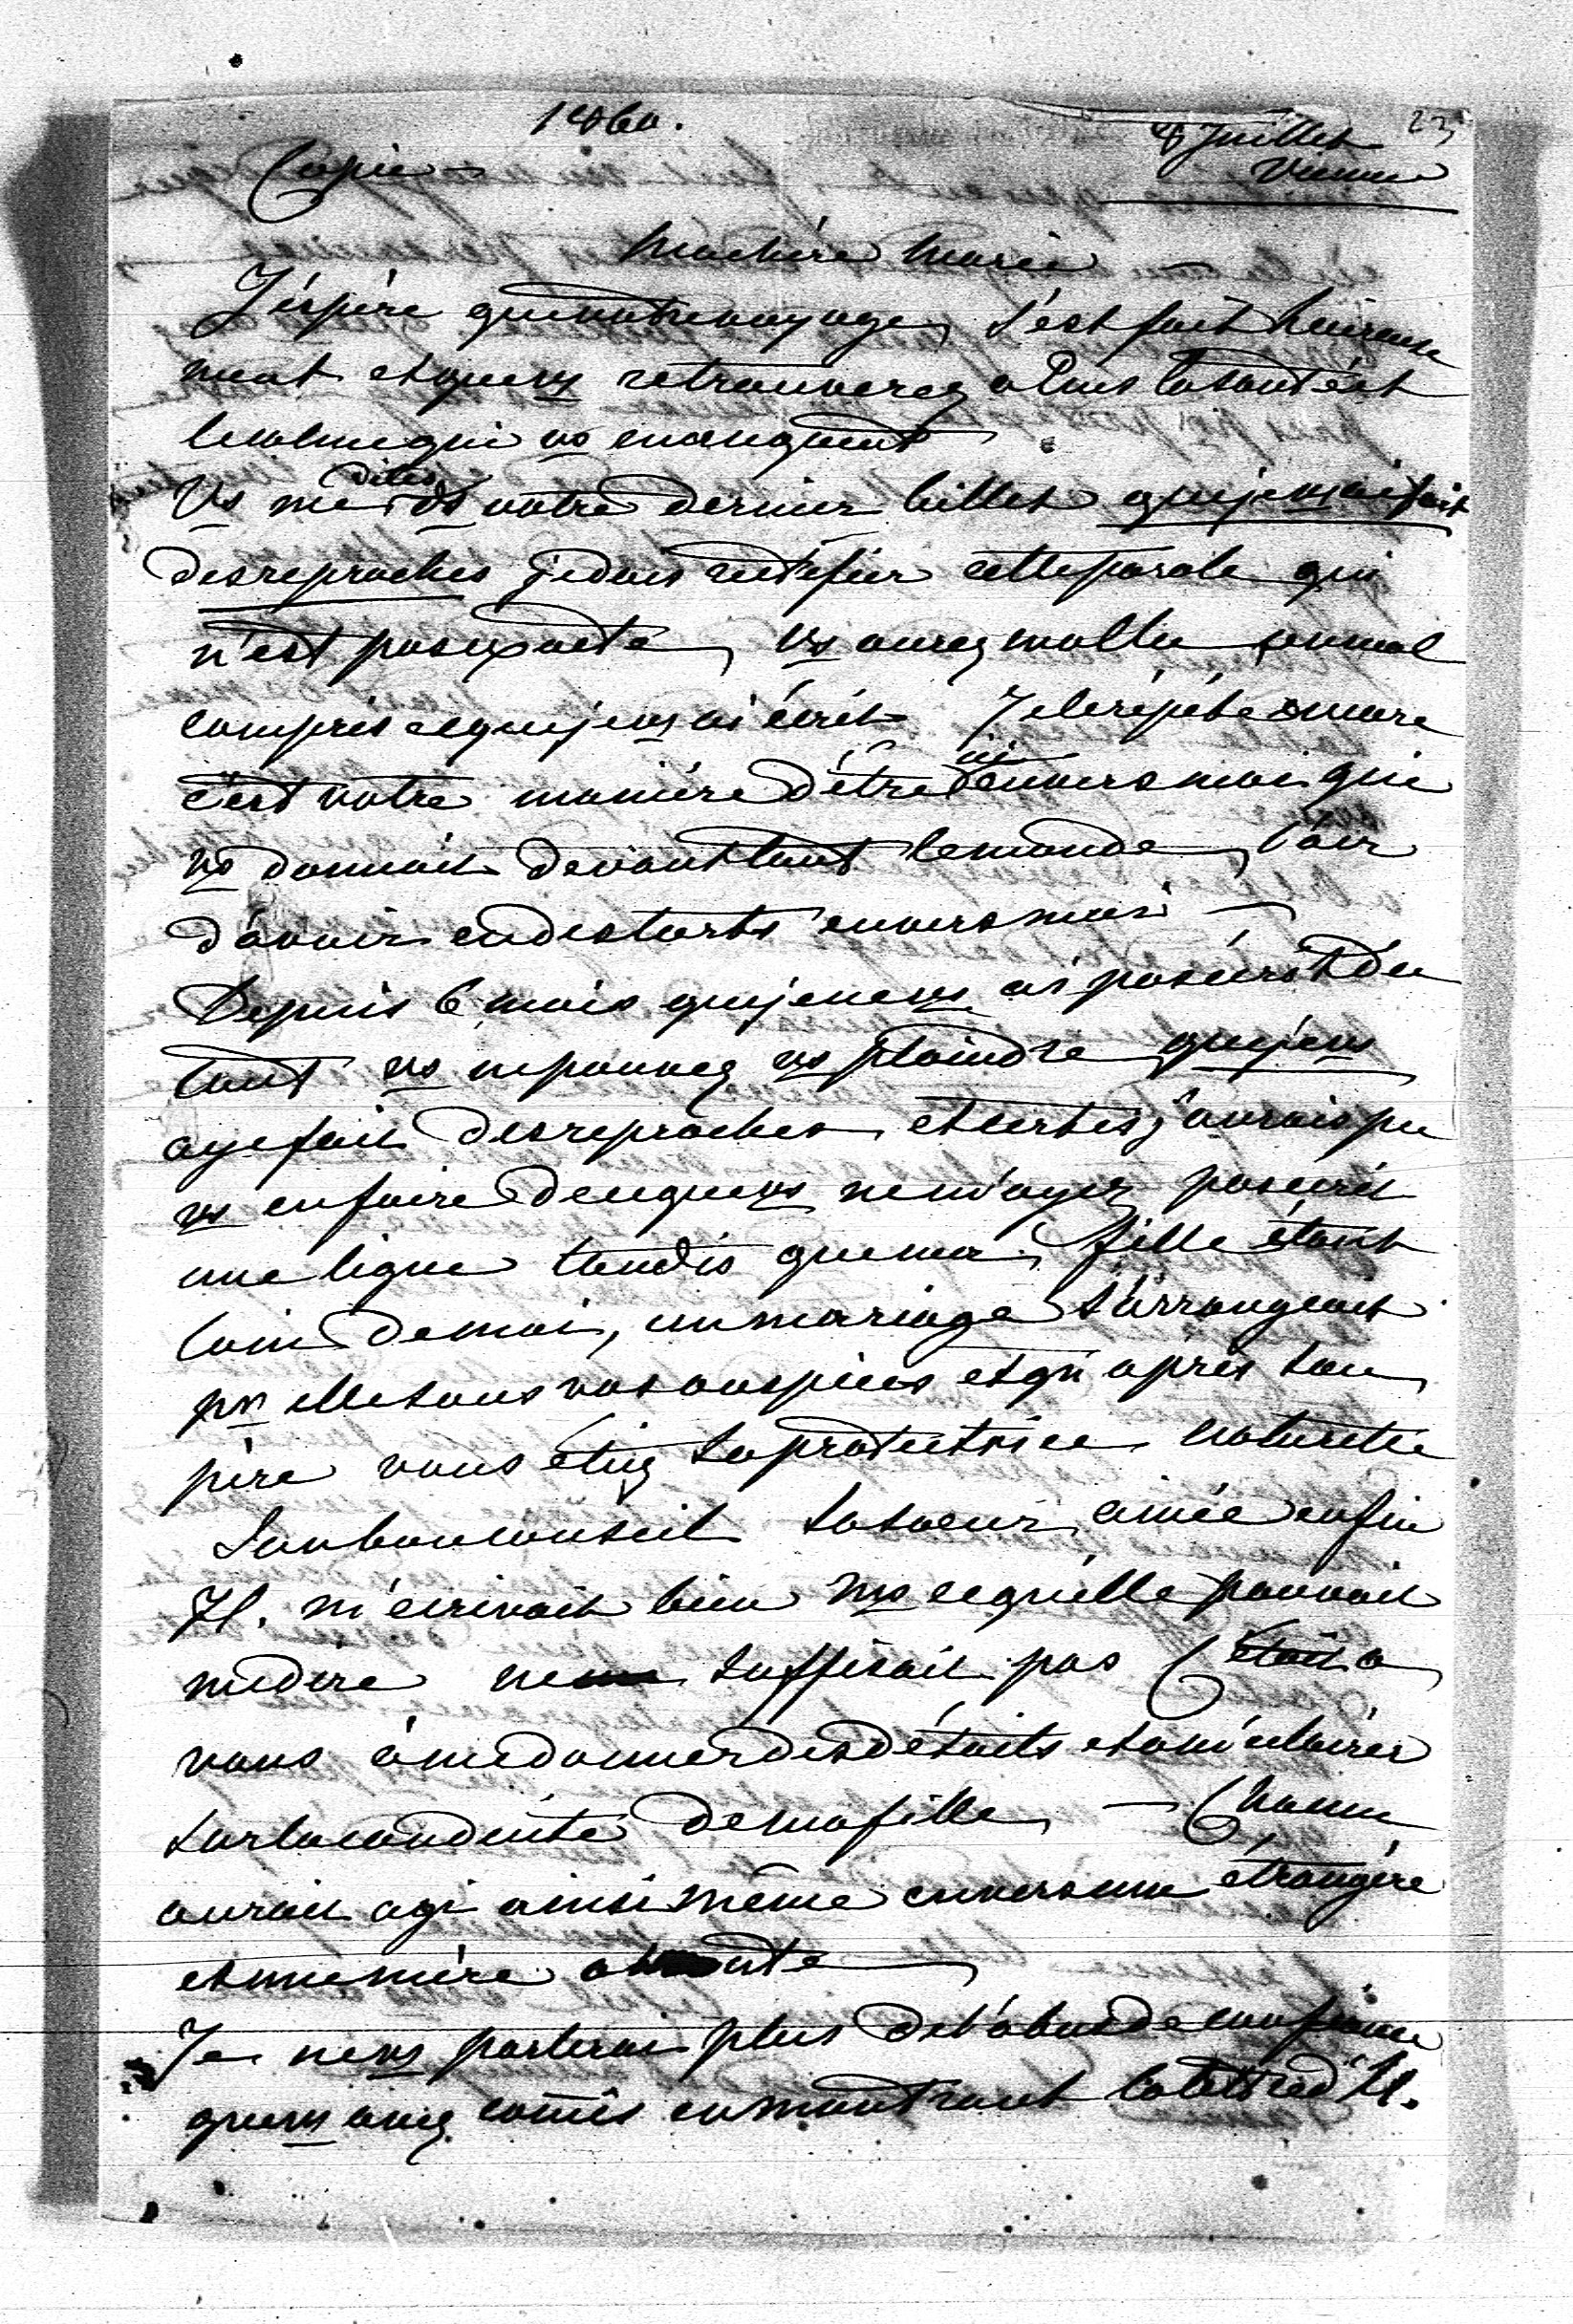 1860.
8 Juillet 23
Copie — Vienne
Ma chère Marie —
J'éspère que votre voyage s'est fait heureuse
ment et que vs retrouverez a la santé et
le calme qui vs manquent
Vs me dites ds votre dernier billet que je vs ai fait
des reproches je dois rectifier cette parole qui
n'est pas exacte, vs aurez mal lu ou mal
compris ce que je vs ai écrit Je le répéte encore
c'est votre manière d'être ici envers moi qui
vs donnait devant tout le monde, l'air
d'avoir eu des torts envers moi —
Depuis 6 mois que je ne vs ai pas écrit du
tout vs ne pouvez vs plaindre que je vs
aye fait des reproches, et certes j'aurais pu
vs en faire de ce que vs ne m'ayez pas écrit
une ligne tandis que ma fille étant
loin de moi, un mariage s'arrangeait
pr elle sous vos auspices et qu'après son
père vous étiez sa protectrice naturelle
son bon conseil sa soeur ainée enfin
H. m'écrivait bien mes ce qu'elle pouvait
me dire ne suffisait pas C'était a
vous à me donner des détails et a m'éclairer
sur la conduite de ma fille, —
aurait agi ainsi même envers une étrangère
et une mère absente
Je ne vs parlerai plus de l'abus de confiance
que vs aviez comîs en montrant la lettre d'H.